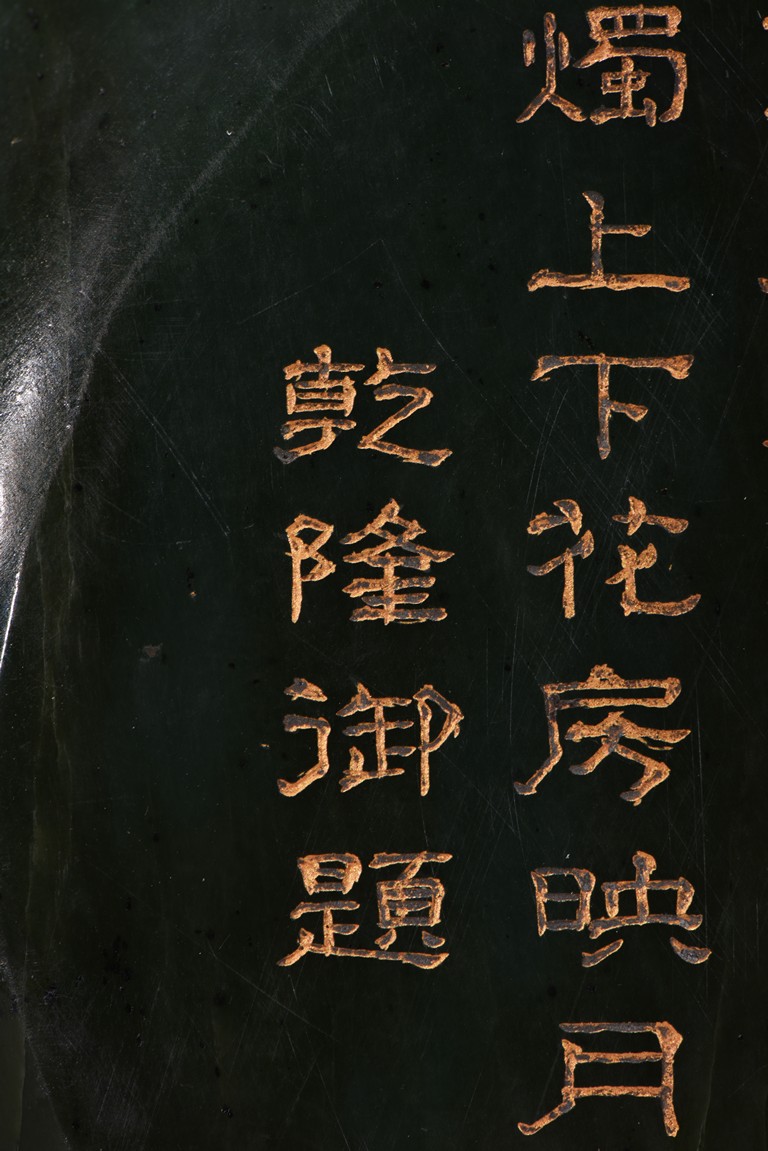 燭上下花房映月
乾隆御題